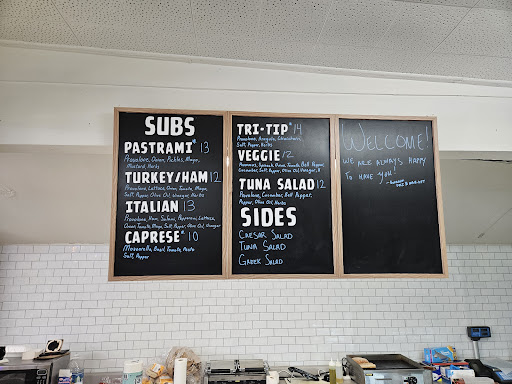 SUBS
PASTRAMI* 13
Provolone, Onion, Pickles, Mayo,
Mustard, Herbs
TURKEY/HAM 12
Provolone, Lettuce, Onion, Tomato, Mayo,
Salt, Pepper, Olive Oil, Vinegar, Herbs
ITALIAN 13
Provolone, Ham, Salami, Pepperoni, Lettuce,
Onion, Tomato, Mayo, Salt, Pepper, Olive Oil, Vinegar
CAPRESE* 10
Mozzarella, Basil, Tomato, Pesto
Salt, Pepper
TRI-TIP* 14
Provolone, Arugula,
Salt, Pepper, Herbs
VEGGIE 12
Hummus, Spinach, Onion, Tomato, Bell Pepper,
Cucumber, Salt, Pepper, Olive Oil, Vinegar
TUNA SALAD 12
Provolone, Cucumber, Bell Pepper,
Pepper, Olive Oil, Herbs
SIDES
CAESAR SALAD
TUNA SALAD
GREEK SALAD
WELCOME!
WE ARE ALWAYS HAPPY
TO HAVE YOU!